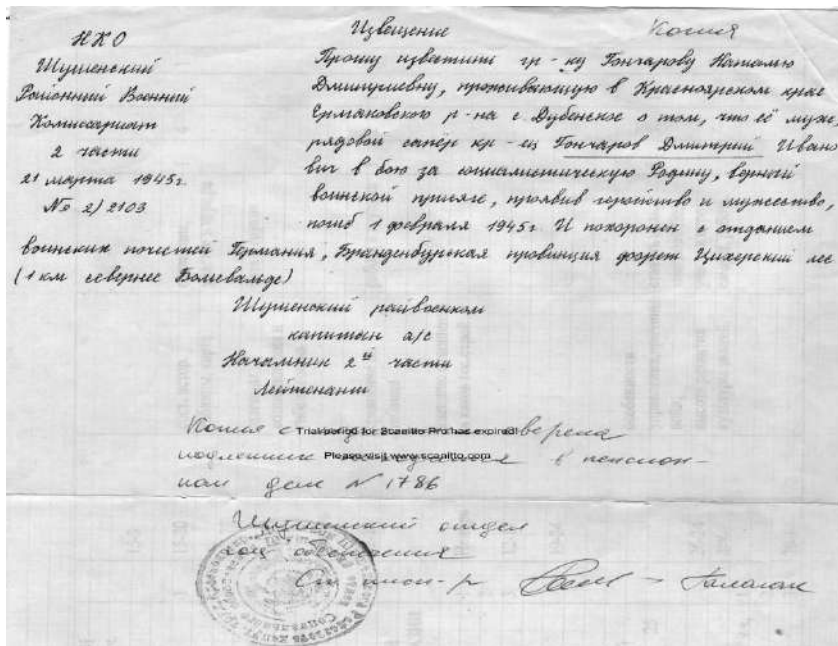 НКО
Шушенский
Районный Военный
Комиссариат
2 части
21 марта 1945г.
№ 2/2103
Извещение
Копия
Прошу известить гр-ку Гончарову Наталью
Дмитриевну, проживающую в Красноярском крае
Ермаковского р-на с. Дубенское о том, что её муж,
рядовой сапёр кр-ец Гончаров Дмитрий Ивано
вич в бою за социалистическую Родину, верный
воинской присяге, проявив геройство и мужество,
погиб 1 февраля 1945г. И похоронен с отданием
воинских почестей Германия, Бранденбургская провинция форет Цихерский лес
(1 км севернее
Шушенский райвоенком
капитан а/с
Начальник 2й части
Лейтенант
Копия с верена
Trial period for Scanitto Pro has expired!
подлинник в пенсион-
Please visit www.scanitto.com
ном деле № 1786
Шушенский отдел
соц обеспечения